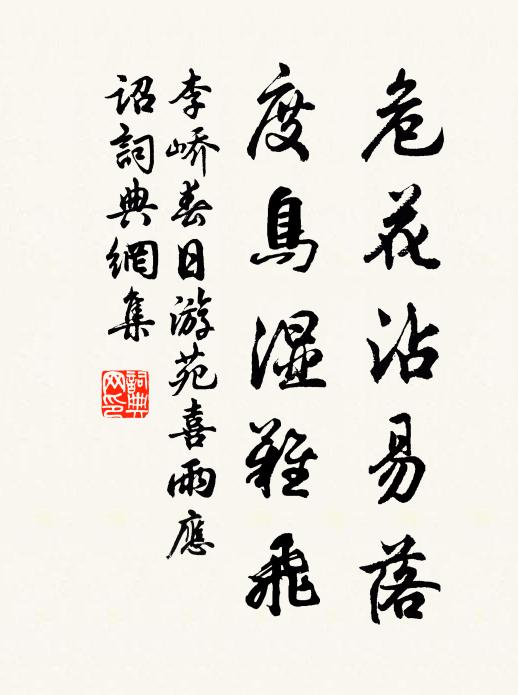 危花沾易落
度鳥濕難飛
李嶠春日游苑喜雨應
詔詞典網集
詞典网印